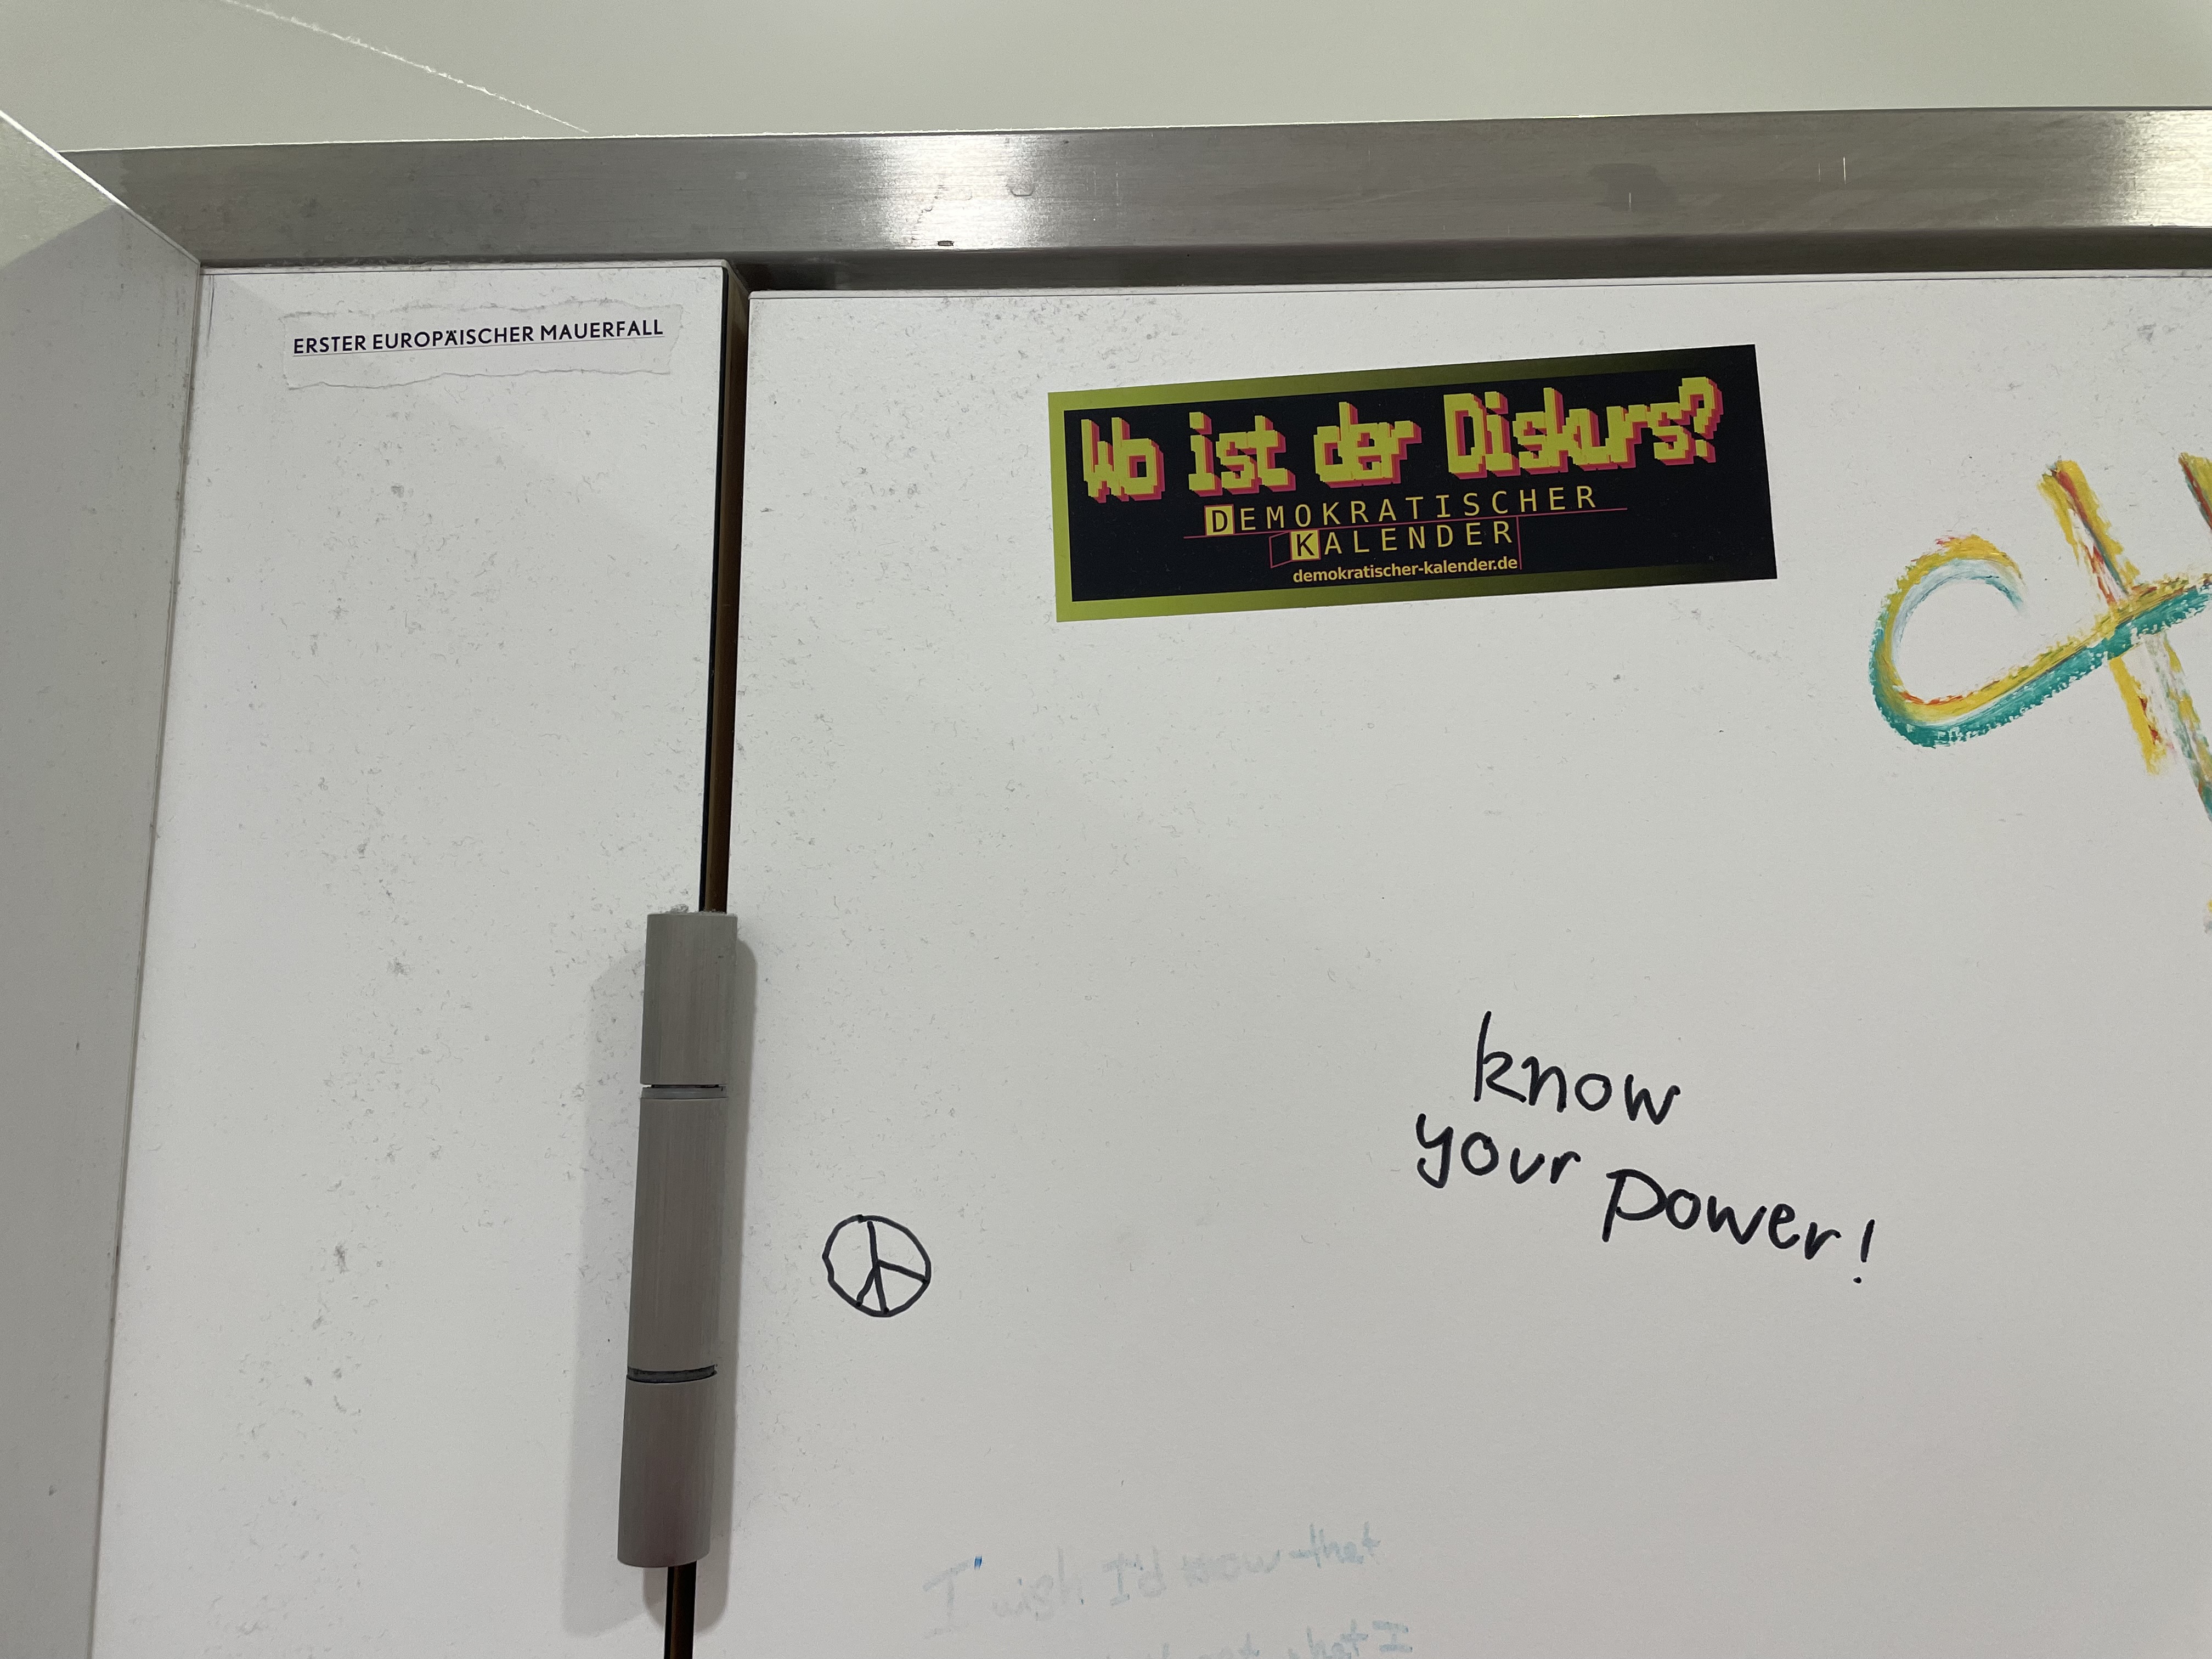 ERSTER EUROPÄISCHER MAUERFALL
Wo ist der Diskurs?
DEMOKRATISCHER
KALENDER
demokratischer-kalender.de
know
your power!
I wish I'd know that
what I